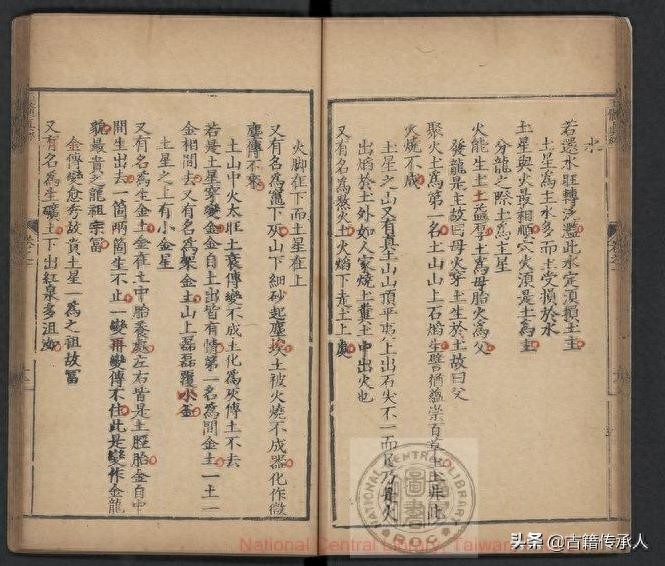 水
若還水旺轉泛濫此水定須損土主
土星為主水多而主受損於水
土星與火最相順穴火須是土為主
分龍之際土為主星
火能生土土蓋厚土為母胎火為父
發龍是主故曰母火穿土生於土故曰父
聚火土為第一名土山山上石焰生譬猶蘊崇百草上土非此
火燒不成
土星之山又有真土山山頂平也上出石尖不一而足乃母火
出焰於土外如人家燒土薰土中出火也
又有名為聚火土火焰下走土上處
火脚在下而土星在上
又有名為竃下灰山下細砂起塵埃土被火燒不成器化作微
塵傳不來
土山中火太旺土衰傳變不成土化為灰傳土不去
若是土星穿變金金自土出皆有情第一名為間金土一土一
金相間去又有名為架金土山上磊磊覆小盃
土星之上有小金星
又有名為生金土金在土中胎養處左右皆是土脛胎金自中
間生出去一箇兩箇生不止一變再變傳不住此是變作金龍
貌最貴之龍祖宗冨
金傳變愈秀故貴土星為之祖故冨
又有名為生礦土土下出紅泉多沮洳
National Central Library, Taiwan
NATIONAL CENTRAL LIBRARY
圖書
R.O.C.
头条 @古籍传承人